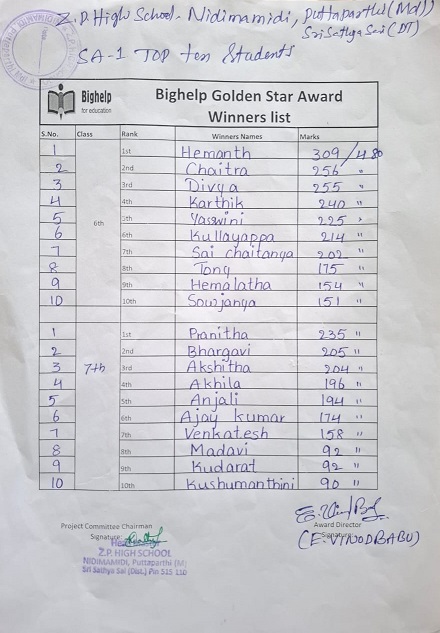 Z.P. High School. Nidimamidi, Puttaparthi (Mdl)
Sri Sathya Sai (DT)
SA-1 TOP ten Students
Bighelp
for education
Bighelp Golden Star Award
Winners list
S.No. Class Rank Winners Names Marks
1 1st Hemanth 309/480
2 2nd Chaitra 256 "
3 3rd Divya 255 "
4 4th Karthik 240 "
5 6th 5th Yaswini 225 "
6 6th Kullayappa 214 "
7 7th Sai chaitanya 202 "
8 8th Tony 175 "
9 9th Hemalatha 154 "
10 10th Sowjanya 151 "
1 1st Pranitha 235 "
2 2nd Bhargavi 205 "
3 7th 3rd Akshitha 204 "
4 4th Akhila 196 "
5 5th Anjali 194 "
6 6th Ajay kumar 174 "
7 7th Venkatesh 158 "
8 8th Madavi 92 "
9 9th Kudarat 92 "
10 10th Kushumanthini 90 "
Project Committee Chairman Award Director
Signature: Signature:
(E.VINODBABU)
Z.P. HIGH SCHOOL
NIDIMAMIDI, Puttaparthi (M)
Sri Sathya Sai (Dist.) Pin 515 110